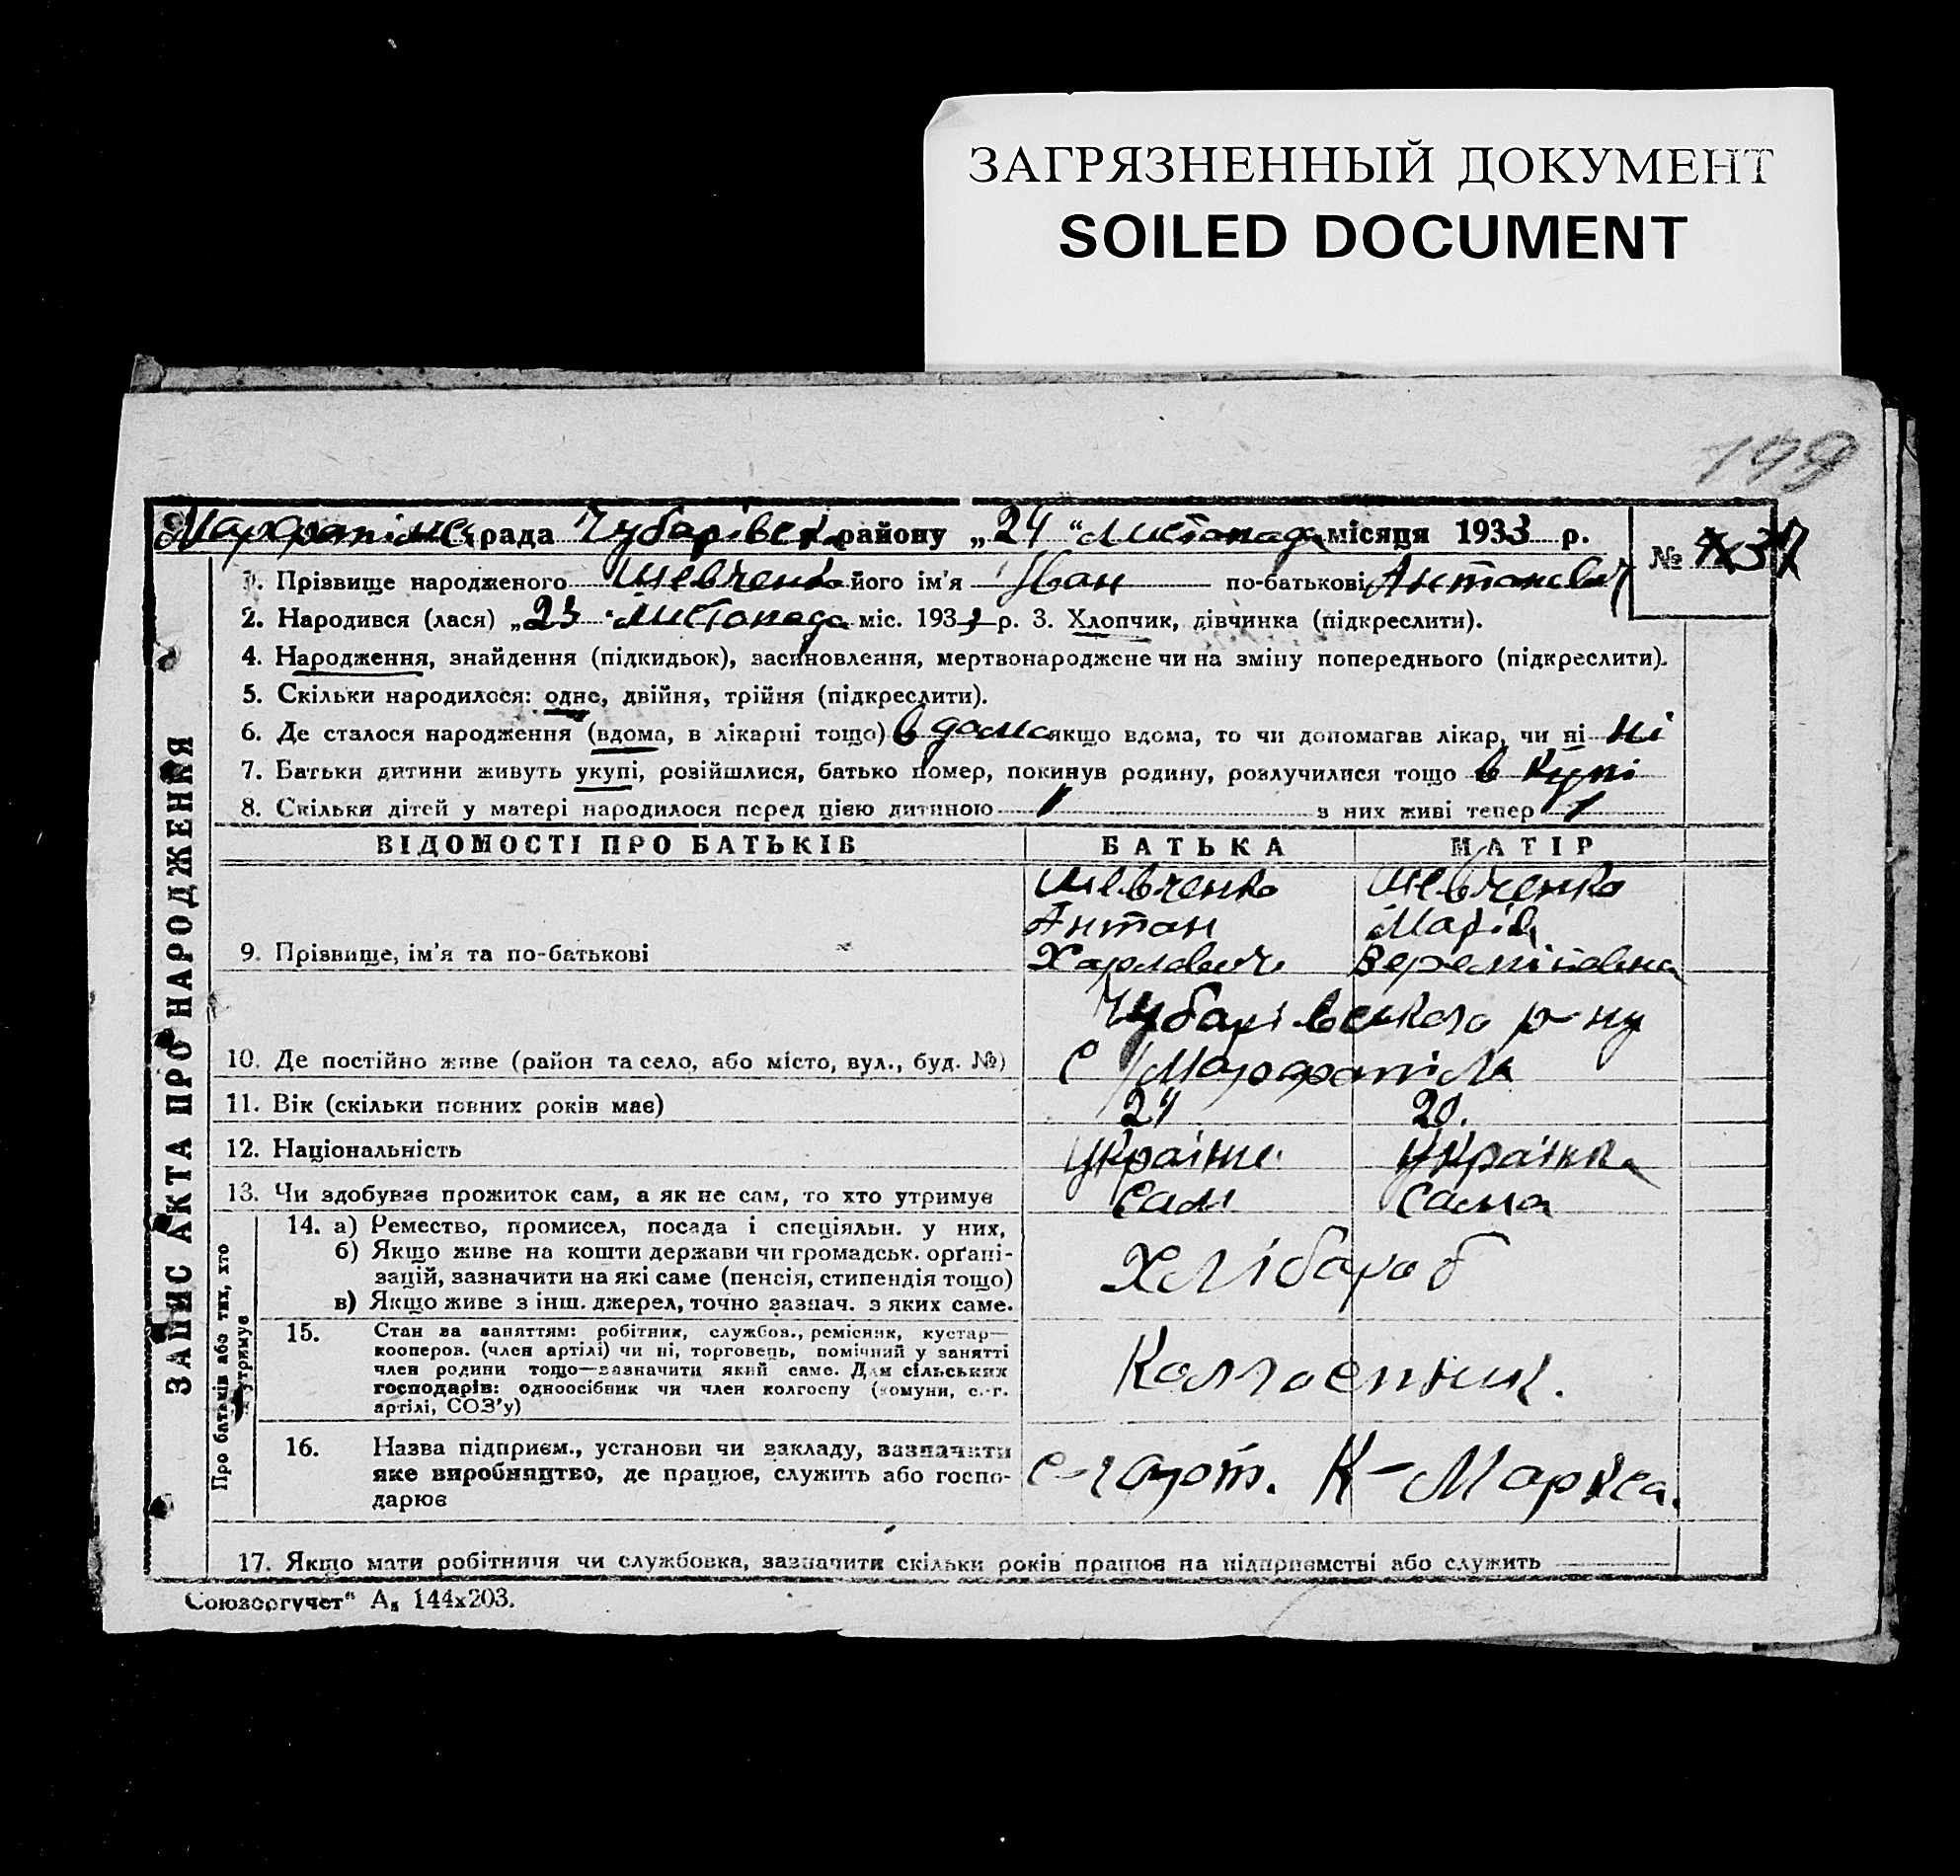 ЗАГРЯЗНЕННЫЙ ДОКУМЕНТ
SOILED DOCUMENT
199
рада Чубарівськ району „24 “ Листопада місяця 1933 р.
№ 37
1. Прізвище народженого Шевченко його ім'я Іван по-батькові Антонович
2. Народився (лася) „23 “ Листопада міс. 1933 р. 3. Хлопчик, дівчинка (підкреслити).
4. Народження, знайдення (підкидьок), засиновлення, мертвонароджене чи на зміну попереднього (підкреслити).
5. Скільки народилося: одне, двійня, трійня (підкреслити).
6. Де сталося народження (вдома, в лікарні тощо) в дома якщо вдома, то чи допомагав лікар, чи ні ні
7. Батьки дитини живуть укупі, розійшлися, батько помер, покинув родину, розлучилися тощо в купі
8. Скільки дітей у матері народилося перед цією дитиною 1 з них живі тепер 1
ЗАПИС АКТА ПРО НАРОДЖЕННЯ
ВІДОМОСТІ ПРО БАТЬКІВ БАТЬКА МАТІР
Шевченко Шевченко
Антон Марія
9. Прізвище, ім'я та по-батькові Харлович
Чубарівського р-ну
10. Де постійно живе (район та село, або місто, вул., буд. №) с Марфопіль
11. Вік (скільки повних років має) 24 20.
12. Національність Українець Українка
13. Чи здобуває прожиток сам, а як не сам, то хто утримує сам сама
Про батьків або тих, хто
їх утримує
14. а) Ремество, промисел, посада і спеціяльн. у них,
б) Якщо живе на кошти держави чи громадськ. орґані-
зацій, зазначити на які саме (пенсія, стипендія тощо)
в) Якщо живе з інш. джерел, точно зазнач. з яких саме.
Хлібароб
15. Стан за заняттям: робітник, службов., ремісник, кустар—
кооперов. (член артілі) чи ні, торговець, помічний у занятті
член родини тощо—зазначити який саме. Для сільських
господарів: одноосібник чи член колгоспу (комуни, с.-г.
артілі, СОЗ'у)
Колгоспник.
16. Назва підприєм., установи чи закладу, зазначити
яке виробництво, де працює, служить або госпо-
дарює
К-Маркса.
17. Якщо мати робітниця чи службовка, зазначити скільки років працює на підприємстві або служить
Союзоргучет" А₅ 144x203.